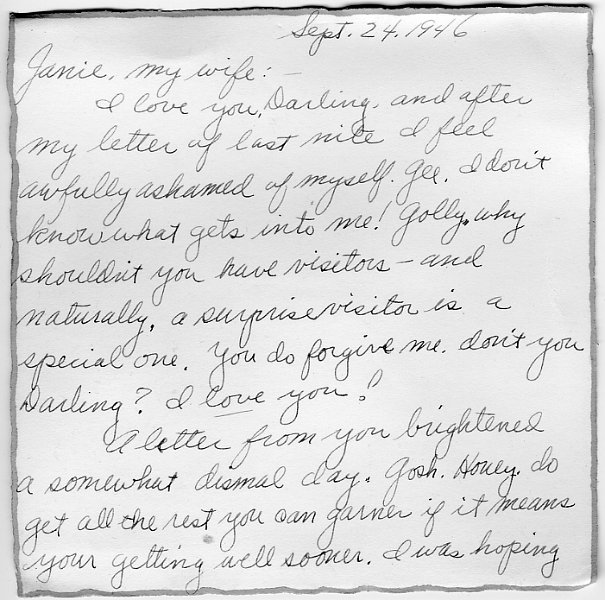 Sept. 24. 1946
Janie, my wife: —
I love you, Darling, and after
my letter of last nite I feel
awfully ashamed of myself. Gee, I don't
know what gets into me! Golly, why
shouldn't you have visitors — and
naturally, a surprise visitor is a
special one. You do forgive me, don't you
Darling? I love you!
A letter from you brightened
a somewhat dismal day. Gosh, Honey, do
get all the rest you can garner if it means
your getting well sooner. I was hoping